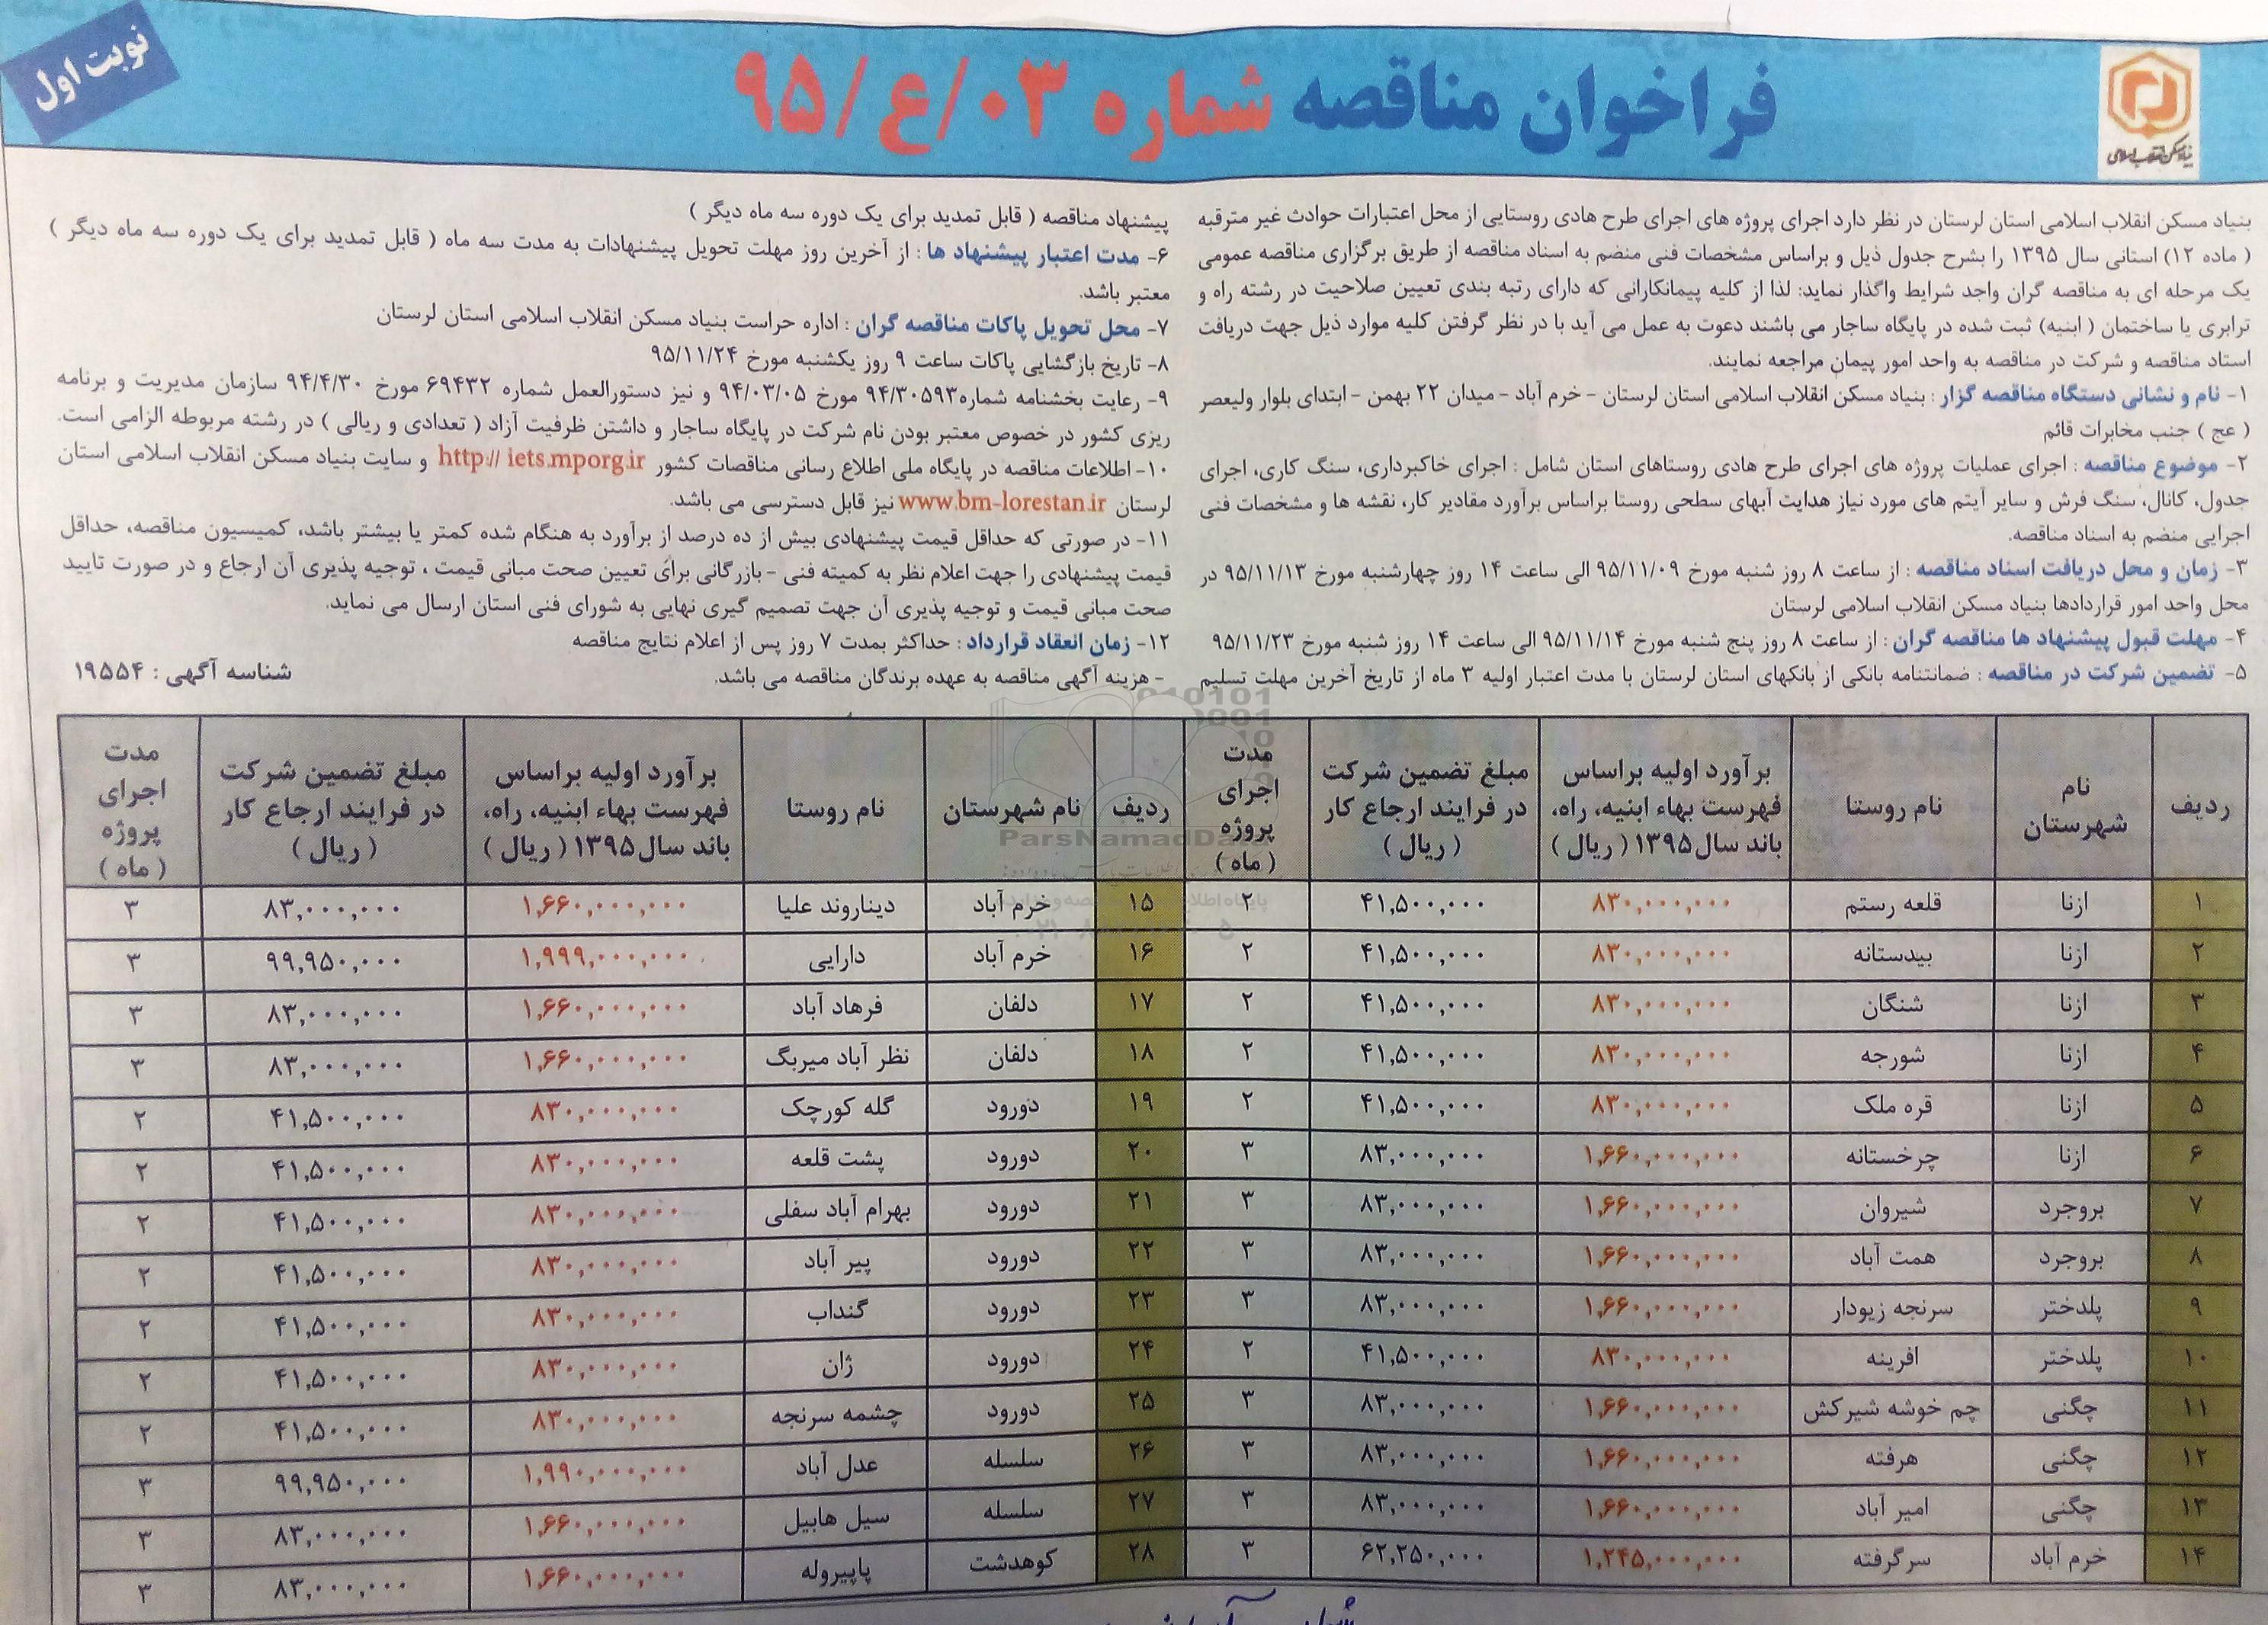 نوبت اول
فراخوان مناقصه شماره ۰۳/ع/۹۵
بنیاد مسکن انقلاب اسلامی
بنیاد مسکن انقلاب اسلامی استان لرستان در نظر دارد اجرای پروژه های اجرای طرح هادی روستایی از محل اعتبارات حوادث غیر مترقبه
( ماده ۱۲) استانی سال ۱۳۹۵ را بشرح جدول ذیل و براساس مشخصات فنی منضم به اسناد مناقصه از طریق برگزاری مناقصه عمومی
یک مرحله ای به مناقصه گران واجد شرایط واگذار نماید: لذا از کلیه پیمانکارانی که دارای رتبه بندی تعیین صلاحیت در رشته راه و
ترابری یا ساختمان ( ابنیه) ثبت شده در پایگاه ساجار می باشند دعوت به عمل می آید با در نظر گرفتن کلیه موارد ذیل جهت دریافت
استاد مناقصه و شرکت در مناقصه به واحد امور پیمان مراجعه نمایند.
۱- نام و نشانی دستگاه مناقصه گزار : بنیاد مسکن انقلاب اسلامی استان لرستان - خرم آباد - میدان ۲۲ بهمن - ابتدای بلوار ولیعصر
( عج ) جنب مخابرات قائم
۲- موضوع مناقصه : اجرای عملیات پروژه های اجرای طرح هادی روستاهای استان شامل : اجرای خاکبرداری، سنگ کاری، اجرای
جدول، کانال، سنگ فرش و سایر آیتم های مورد نیاز هدایت آبهای سطحی روستا براساس برآورد مقادیر کار، نقشه ها و مشخصات فنی
اجرایی منضم به اسناد مناقصه.
۳- زمان و محل دریافت اسناد مناقصه : از ساعت ۸ روز شنبه مورخ ۹۵/۱۱/۰۹ الی ساعت ۱۴ روز چهارشنبه مورخ ۹۵/۱۱/۱۳ در
محل واحد امور قراردادها بنیاد مسکن انقلاب اسلامی لرستان
۴- مهلت قبول پیشنهاد ها مناقصه گران : از ساعت ۸ روز پنج شنبه مورخ ۹۵/۱۱/۱۴ الی ساعت ۱۴ روز شنبه مورخ ۹۵/۱۱/۲۳
۵- تضمین شرکت در مناقصه : ضمانتنامه بانکی از بانکهای استان لرستان با مدت اعتبار اولیه ۳ ماه از تاریخ آخرین مهلت تسلیم
پیشنهاد مناقصه ( قابل تمدید برای یک دوره سه ماه دیگر )
۶- مدت اعتبار پیشنهاد ها : از آخرین روز مهلت تحویل پیشنهادات به مدت سه ماه ( قابل تمدید برای یک دوره سه ماه دیگر )
معتبر باشد.
۷- محل تحویل پاکات مناقصه گران : اداره حراست بنیاد مسکن انقلاب اسلامی استان لرستان
۸- تاریخ بازگشایی پاکات ساعت ۹ روز یکشنبه مورخ ۹۵/۱۱/۲۴
۹- رعایت بخشنامه شماره۹۴/۳۰۵۹۳ مورخ ۹۴/۰۳/۰۵ و نیز دستورالعمل شماره ۶۹۴۳۲ مورخ ۹۴/۴/۳۰ سازمان مدیریت و برنامه
ریزی کشور در خصوص معتبر بودن نام شرکت در پایگاه ساجار و داشتن ظرفیت آزاد ( تعدادی و ریالی ) در رشته مربوطه الزامی است.
۱۰- اطلاعات مناقصه در پایگاه ملی اطلاع رسانی مناقصات کشور http:// iets.mporg.ir و سایت بنیاد مسکن انقلاب اسلامی استان
لرستان www.bm-lorestan.ir نیز قابل دسترسی می باشد.
۱۱- در صورتی که حداقل قیمت پیشنهادی بیش از ده درصد از برآورد به هنگام شده کمتر یا بیشتر باشد، کمیسیون مناقصه، حداقل
قیمت پیشنهادی را جهت اعلام نظر به کمیته فنی - بازرگانی برای تعیین صحت مبانی قیمت ، توجیه پذیری آن ارجاع و در صورت تایید
صحت مبانی قیمت و توجیه پذیری آن جهت تصمیم گیری نهایی به شورای فنی استان ارسال می نماید.
۱۲- زمان انعقاد قرارداد : حداکثر بمدت ۷ روز پس از اعلام نتایج مناقصه
- هزینه آگهی مناقصه به عهده برندگان مناقصه می باشد.
شناسه آگهی : ۱۹۵۵۴
ردیف | نام شهرستان | نام روستا | برآورد اولیه براساس فهرست بهاء ابنیه، راه، باند سال ۱۳۹۵ ( ریال ) | مبلغ تضمین شرکت در فرایند ارجاع کار ( ریال ) | مدت اجرای پروژه ( ماه )
۱ | ازنا | قلعه رستم | ۸۳۰,۰۰۰,۰۰۰ | ۴۱,۵۰۰,۰۰۰ | ۲
۲ | ازنا | بیدستانه | ۸۳۰,۰۰۰,۰۰۰ | ۴۱,۵۰۰,۰۰۰ | ۲
۳ | ازنا | شنگان | ۸۳۰,۰۰۰,۰۰۰ | ۴۱,۵۰۰,۰۰۰ | ۲
۴ | ازنا | شورجه | ۸۳۰,۰۰۰,۰۰۰ | ۴۱,۵۰۰,۰۰۰ | ۲
۵ | ازنا | قره ملک | ۸۳۰,۰۰۰,۰۰۰ | ۴۱,۵۰۰,۰۰۰ | ۲
۶ | ازنا | چرخستانه | ۱,۶۶۰,۰۰۰,۰۰۰ | ۸۳,۰۰۰,۰۰۰ | ۳
۷ | بروجرد | شیروان | ۱,۶۶۰,۰۰۰,۰۰۰ | ۸۳,۰۰۰,۰۰۰ | ۳
۸ | بروجرد | همت آباد | ۱,۶۶۰,۰۰۰,۰۰۰ | ۸۳,۰۰۰,۰۰۰ | ۳
۹ | پلدختر | سرنجه زیودار | ۱,۶۶۰,۰۰۰,۰۰۰ | ۸۳,۰۰۰,۰۰۰ | ۳
۱۰ | پلدختر | افرینه | ۸۳۰,۰۰۰,۰۰۰ | ۴۱,۵۰۰,۰۰۰ | ۲
۱۱ | چگنی | چم خوشه شیرکش | ۱,۶۶۰,۰۰۰,۰۰۰ | ۸۳,۰۰۰,۰۰۰ | ۳
۱۲ | چگنی | هرفته | ۱,۶۶۰,۰۰۰,۰۰۰ | ۸۳,۰۰۰,۰۰۰ | ۳
۱۳ | چگنی | امیر آباد | ۱,۶۶۰,۰۰۰,۰۰۰ | ۸۳,۰۰۰,۰۰۰ | ۳
۱۴ | خرم آباد | سرگرفته | ۱,۲۴۵,۰۰۰,۰۰۰ | ۶۲,۲۵۰,۰۰۰ | ۳
ردیف | نام شهرستان | نام روستا | برآورد اولیه براساس فهرست بهاء ابنیه، راه، باند سال ۱۳۹۵ ( ریال ) | مبلغ تضمین شرکت در فرایند ارجاع کار ( ریال ) | مدت اجرای پروژه ( ماه )
۱۵ | خرم آباد | دیناروند علیا | ۱,۶۶۰,۰۰۰,۰۰۰ | ۸۳,۰۰۰,۰۰۰ | ۳
۱۶ | خرم آباد | دارایی | ۱,۹۹۹,۰۰۰,۰۰۰ | ۹۹,۹۵۰,۰۰۰ | ۳
۱۷ | دلفان | فرهاد آباد | ۱,۶۶۰,۰۰۰,۰۰۰ | ۸۳,۰۰۰,۰۰۰ | ۳
۱۸ | دلفان | نظر آباد میربگ | ۱,۶۶۰,۰۰۰,۰۰۰ | ۸۳,۰۰۰,۰۰۰ | ۳
۱۹ | دورود | گله کورچک | ۸۳۰,۰۰۰,۰۰۰ | ۴۱,۵۰۰,۰۰۰ | ۲
۲۰ | دورود | پشت قلعه | ۸۳۰,۰۰۰,۰۰۰ | ۴۱,۵۰۰,۰۰۰ | ۲
۲۱ | دورود | بهرام آباد سفلی | ۸۳۰,۰۰۰,۰۰۰ | ۴۱,۵۰۰,۰۰۰ | ۲
۲۲ | دورود | پیر آباد | ۸۳۰,۰۰۰,۰۰۰ | ۴۱,۵۰۰,۰۰۰ | ۲
۲۳ | دورود | گنداب | ۸۳۰,۰۰۰,۰۰۰ | ۴۱,۵۰۰,۰۰۰ | ۲
۲۴ | دورود | ژان | ۸۳۰,۰۰۰,۰۰۰ | ۴۱,۵۰۰,۰۰۰ | ۲
۲۵ | دورود | چشمه سرنجه | ۸۳۰,۰۰۰,۰۰۰ | ۴۱,۵۰۰,۰۰۰ | ۲
۲۶ | سلسله | عدل آباد | ۱,۹۹۰,۰۰۰,۰۰۰ | ۹۹,۹۵۰,۰۰۰ | ۳
۲۷ | سلسله | سیل هابیل | ۱,۶۶۰,۰۰۰,۰۰۰ | ۸۳,۰۰۰,۰۰۰ | ۳
۲۸ | کوهدشت | پاپیروله | ۱,۶۶۰,۰۰۰,۰۰۰ | ۸۳,۰۰۰,۰۰۰ | ۳
ParsNamadData